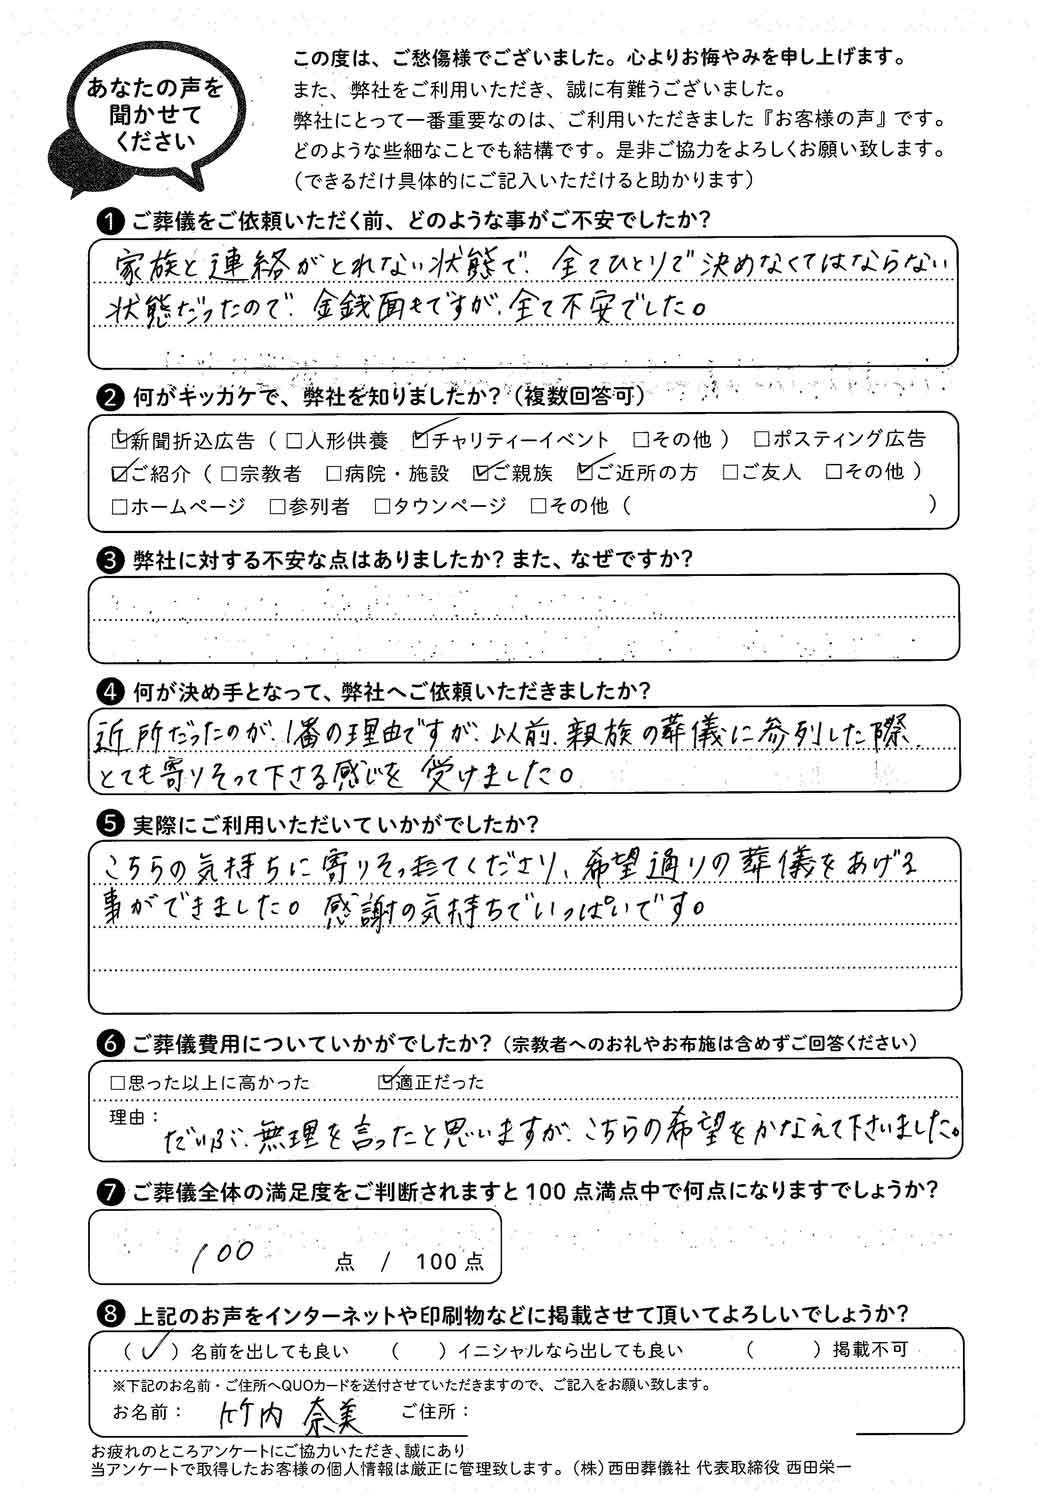 あなたの声を
聞かせて
ください
この度は、ご愁傷様でございました。心よりお悔やみを申し上げます。
また、弊社をご利用いただき、誠に有難うございました。
弊社にとって一番重要なのは、ご利用いただきました『お客様の声』です。
どのような些細なことでも結構です。是非ご協力をよろしくお願い致します。
(できるだけ具体的にご記入いただけると助かります)
1 ご葬儀をご依頼いただく前、どのような事がご不安でしたか?
家族と連絡がとれない状態で、全てひとりで決めなくてはならない
状態だったので、金銭面もですが、全て不安でした。
2 何がキッカケで、弊社を知りましたか?(複数回答可)
☑新聞折込広告(□人形供養 ☑チャリティーイベント □その他) □ポスティング広告
☑ご紹介(□宗教者 □病院・施設 ☑ご親族 ☑ご近所の方 □ご友人 □その他)
□ホームページ □参列者 □タウンページ □その他( )
3 弊社に対する不安な点はありましたか?また、なぜですか?
4 何が決め手となって、弊社へご依頼いただきましたか?
近所だったのが、1番の理由ですが、以前、親族の葬儀に参列した際、
とても寄りそって下さる感じを受けました。
5 実際にご利用いただいていかがでしたか?
こちらの気持ちに寄りそってくださり、希望通りの葬儀をあげる
事ができました。感謝の気持ちでいっぱいです。
6 ご葬儀費用についていかがでしたか?(宗教者へのお礼やお布施は含めずご回答ください)
□思った以上に高かった ☑適正だった
理由:
だいぶ、無理を言ったと思いますが、こちらの希望をかなえて下さいました。
7 ご葬儀全体の満足度をご判断されますと100点満点中で何点になりますでしょうか?
100 点 / 100点
8 上記のお声をインターネットや印刷物などに掲載させて頂いてよろしいでしょうか?
(✓)名前を出しても良い ( )イニシャルなら出しても良い ( )掲載不可
※下記のお名前・ご住所へQUOカードを送付させていただきますので、ご記入をお願い致します。
お名前: 竹内 奈美 ご住所:
お疲れのところアンケートにご協力いただき、誠にあり
当アンケートで取得したお客様の個人情報は厳正に管理致します。(株)西田葬儀社 代表取締役 西田栄一